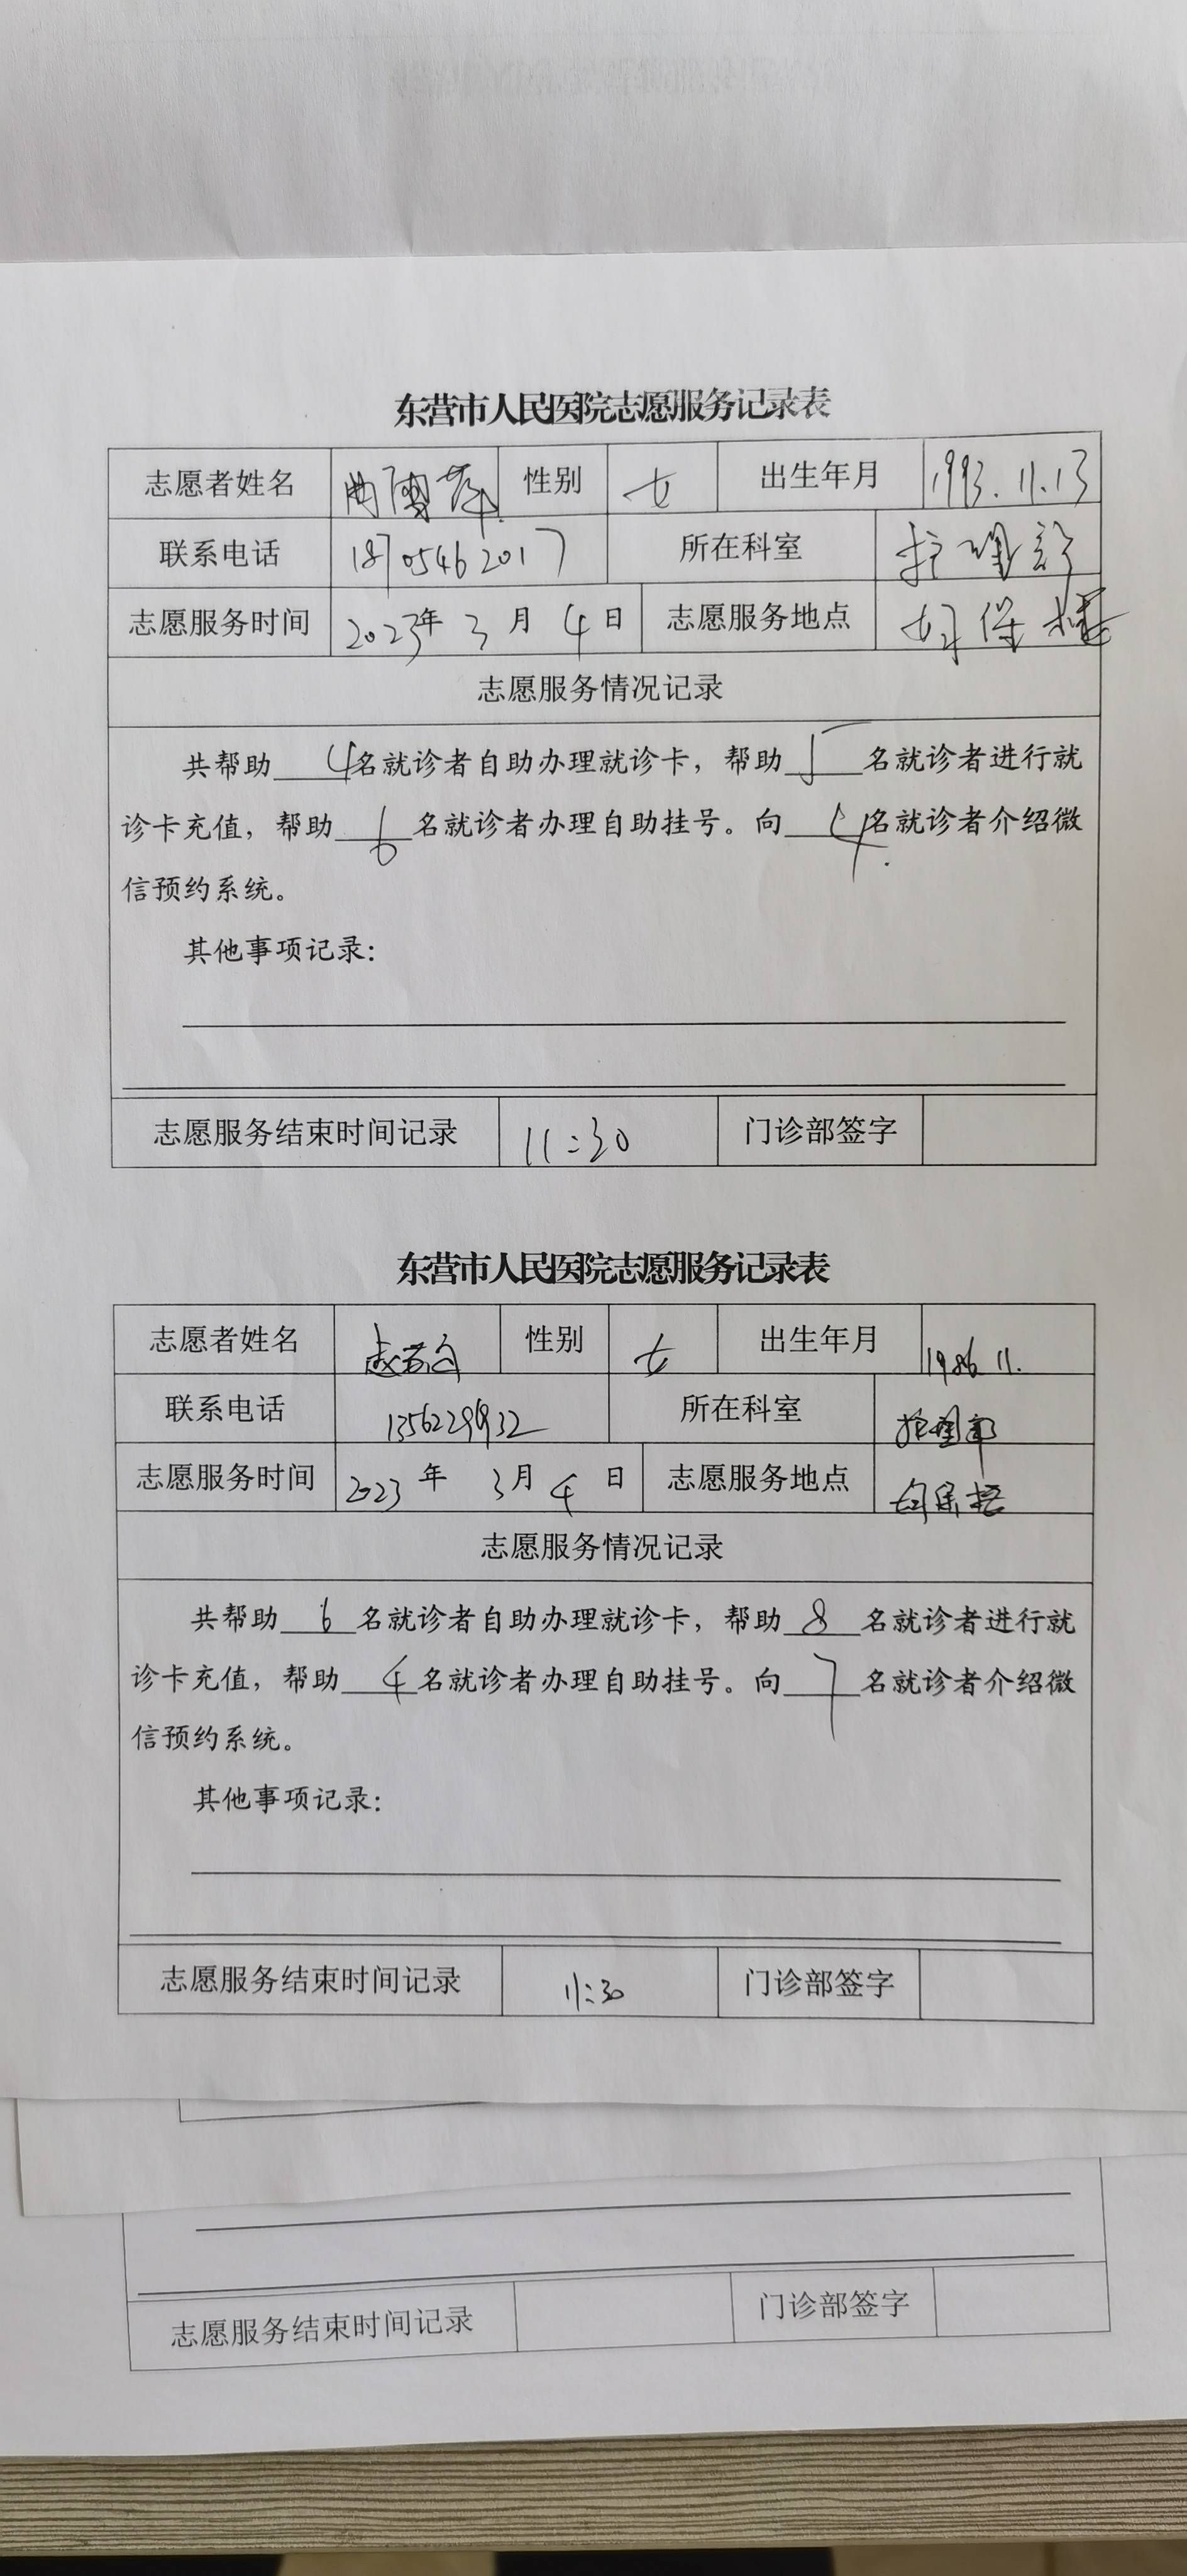 东营市人民医院志愿服务记录表
志愿者姓名 性别 女 出生年月 1993.11.13
联系电话 18705462017 所在科室 护理部
志愿服务时间 2023年 3 月 4 日 志愿服务地点 妇保楼
志愿服务情况记录
共帮助 4名就诊者自助办理就诊卡，帮助 5 名就诊者进行就
诊卡充值，帮助 6 名就诊者办理自助挂号。向 4名就诊者介绍微
信预约系统。
其他事项记录：
志愿服务结束时间记录 11:30 门诊部签字
东营市人民医院志愿服务记录表
志愿者姓名 性别 女 出生年月 1986.11.
联系电话 所在科室 护理部
志愿服务时间 2023 年 3月 4 日 志愿服务地点 妇保楼
志愿服务情况记录
共帮助 6 名就诊者自助办理就诊卡，帮助 8 名就诊者进行就
诊卡充值，帮助 4 名就诊者办理自助挂号。向 7 名就诊者介绍微
信预约系统。
其他事项记录：
志愿服务结束时间记录 11:30 门诊部签字
志愿服务结束时间记录 门诊部签字